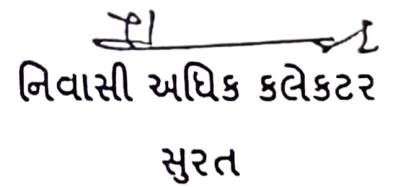 નિવાસી અધિક કલેકટર
સુરત